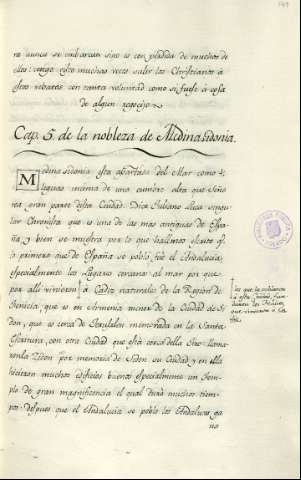 no nunca se embarcan sino es con pérdida de muchos de
ellos: tengo visto muchas veces salir los Christianos à
estos rebatos con tanta voluntad como si fuese à cosa
de algun regocijo.
Cap. 5. de la nobleza de Medina Sidonia.
Medina Sidonia esta apartada del Mar como
leguas encima de una cumbre alta que seño
rea gran parte desta Ciudad. Dice Juliano Luca singu
lar Chronista que es una de las mas antiguas de Espa
ña, y bien se muestra por lo que hallamos escrito q.
la primero que de España se poblò, fue el Andalucia
especialmente los Lugares cercanos al mar por que
por alli vinieron à Cadiz naturales de la Region de
Fenicia, que es en Armenia menor de la Ciudad de Si
don, que es cerca de Jerusalen memorada en la Santa
Escritura, con otra Ciudad que està cerca della
ronla Sidon por memoria de Sidon su Ciudad y en ella
hicieron muchos edificios buenos especialmente un Tem
plo de gran magnificencia el qual durò muchos tiem
pos: despues que el Andalucia se poblò los Andaluces ga
no
los que la
esta Ciudad